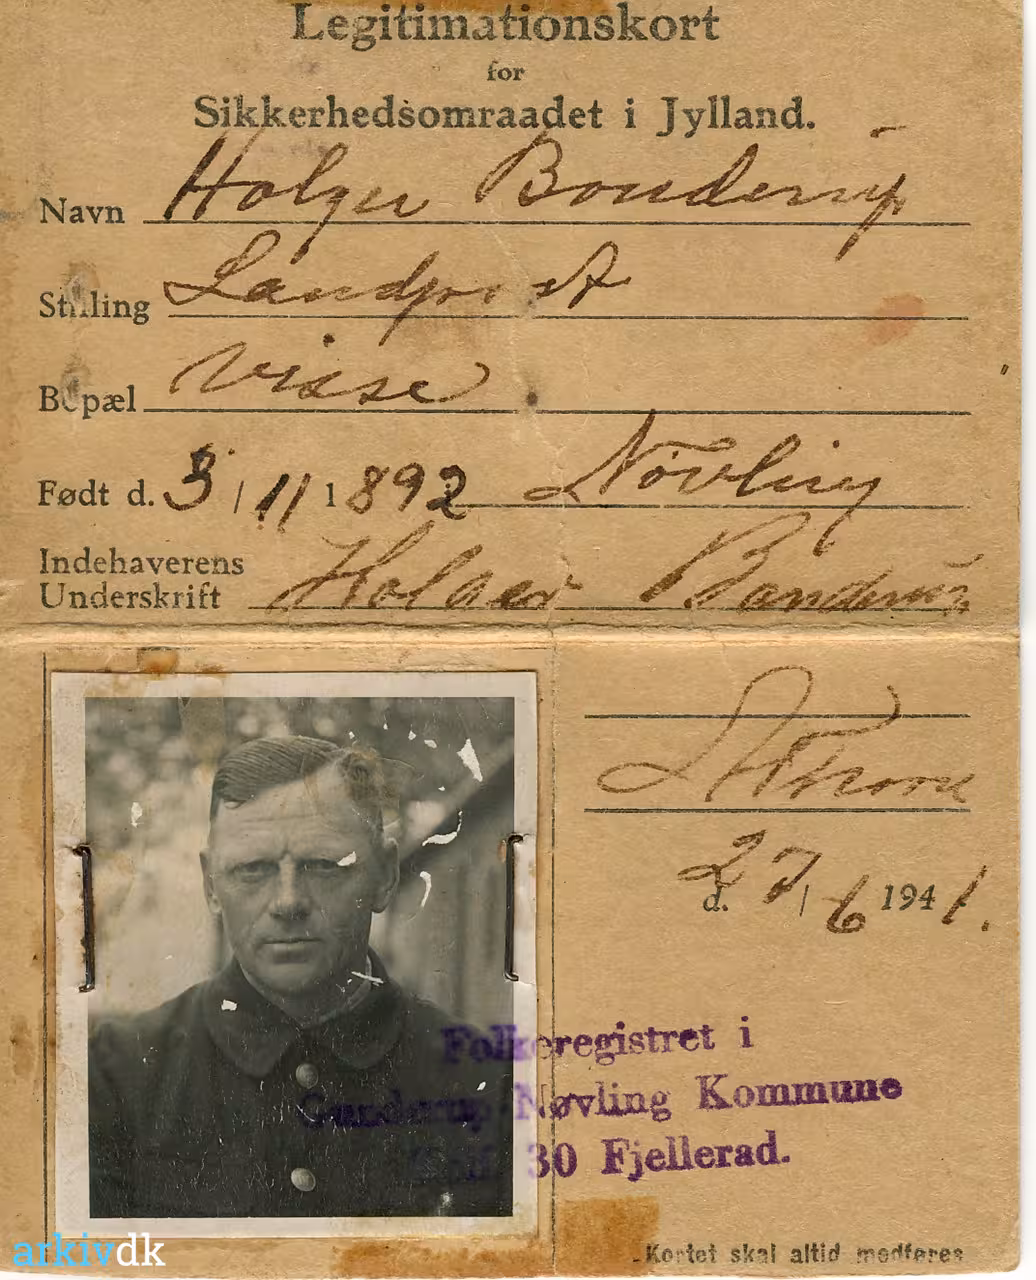 Legitimationskort
for
Sikkerhedsomraadet i Jylland.
Navn Holger Bonderup
Stilling Landpost
Bopæl Visse
Født d. 3 / 11 1892 Nøvling
Indehaverens
Underskrift Holger Bonderup
d. 27 / 6 1941.
Folkeregistret i
Gunderup-Nøvling Kommune
Telf. 30 Fjellerad.
Kortet skal altid medføres
arkivdk